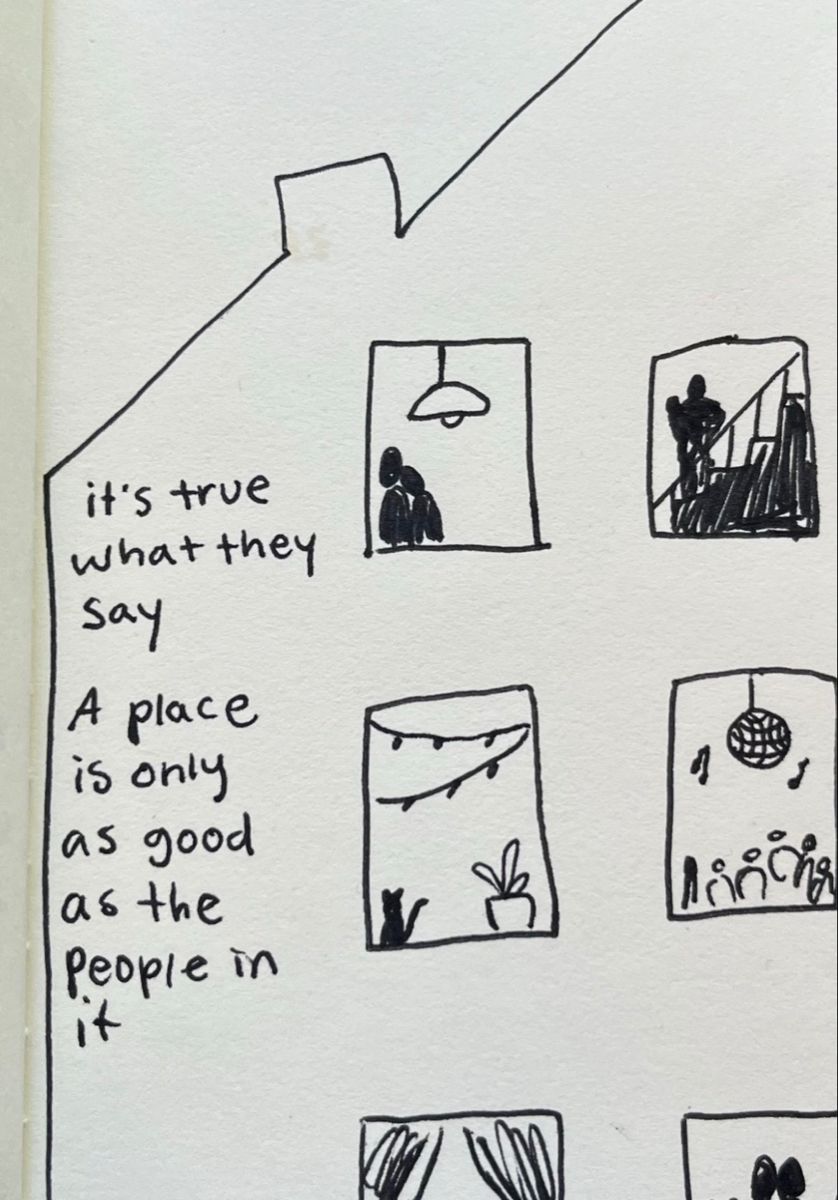 it's true
what they
say
A place
is only
as good
as the
People in
it